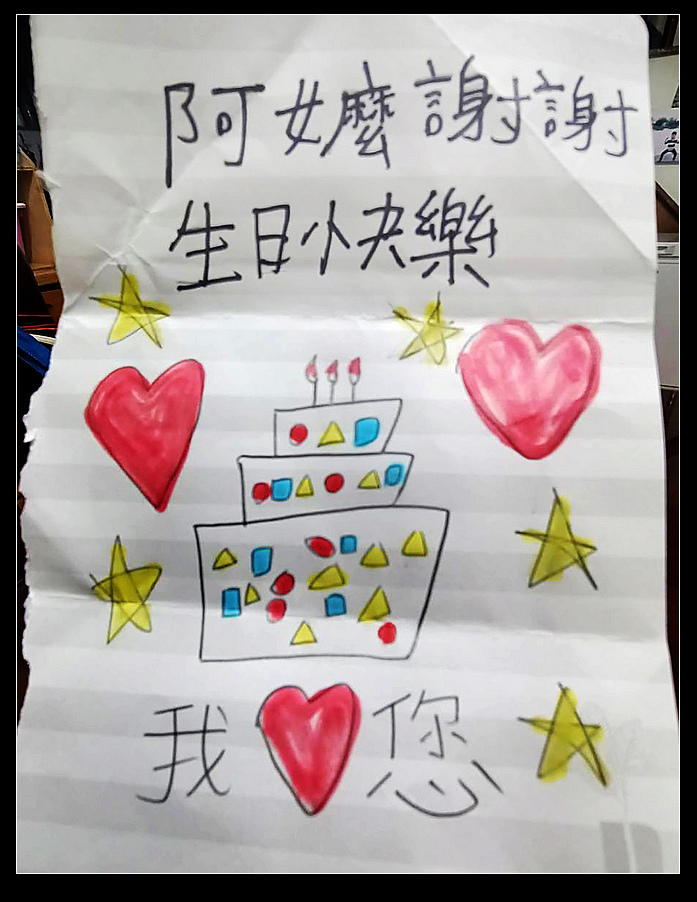 阿嬤謝謝
生日快樂
我❤您